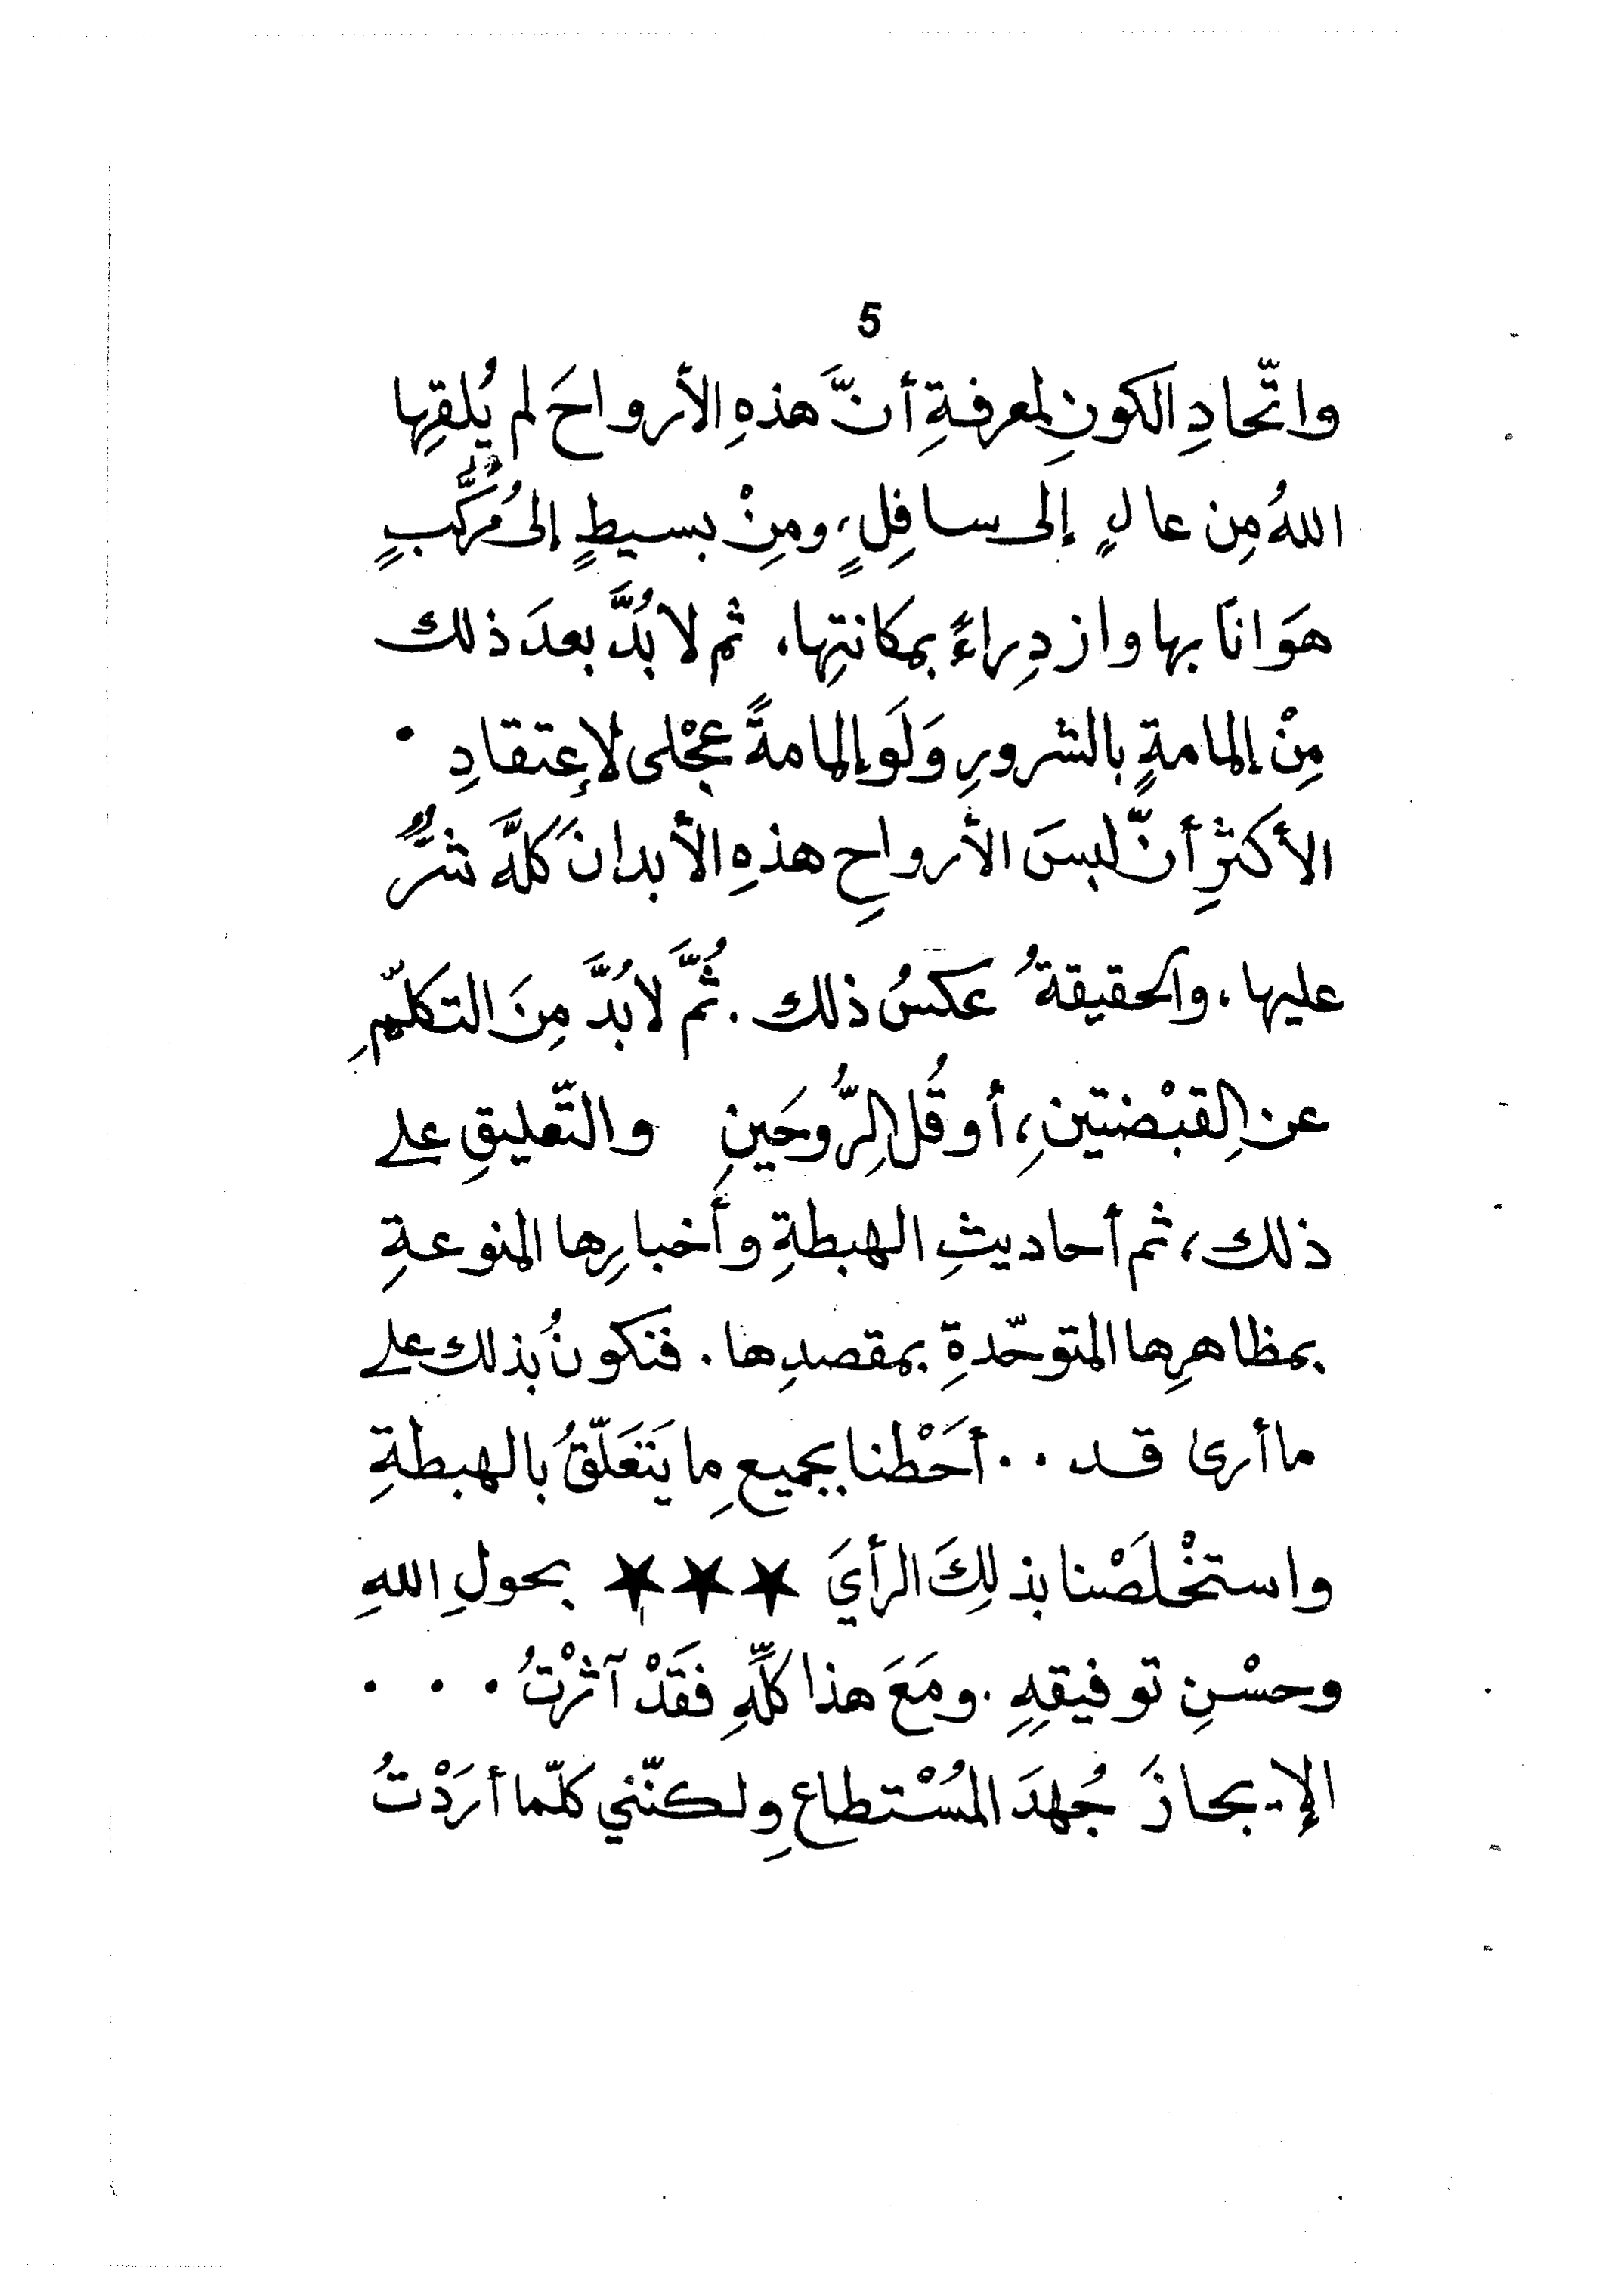 5
واتّحادِ الكونِ لمعرفةِ أنَّ هذهِ الأرواحَ لم يُلقِها
اللهُ مِن عالٍ إلى سافِلٍ، ومِنْ بسيطٍ إلى مُركَّبٍ
هَوَانًا بها وازدِراءً بمكانتِها، ثم لا بُدَّ بعدَ ذلك
مِنْ إلمامةٍ بالشرورِ وَلَو إلمامةً عَجْلى لإعتقادِ .
الأكثرِ أنَّ لبسَ الأرواحِ هذهِ الأبدانَ كلَّهَ شرٌّ
عليها، والحقيقةُ عكسُ ذلك . ثُمَّ لا بُدَّ مِنَ التكلّمِ
عن القبْضتينِ، أو قُل الرُّوحَينِ والتّعليقِ على
ذلك، ثم أحاديثِ الهبطةِ وأخبارِها المنوعةِ
بمظاهرِها المتوحّدةِ بمقصدِها . فنكونُ بذلك على
ما أرى قد .. أَحَطْنا بجميعِ ما يَتَعَلّقُ بالهبطةِ
واستخْلَصْنا بذلِكَ الرأيَ ★★★ بحولِ اللهِ
وحسْنِ توفيقِهِ . ومَعَ هذا كلِّهِ فقَدْ آثرْتُ . . .
الإيجازَ جُهدَ المُسْتطاعِ ولكنّني كلّما أرَدْتُ